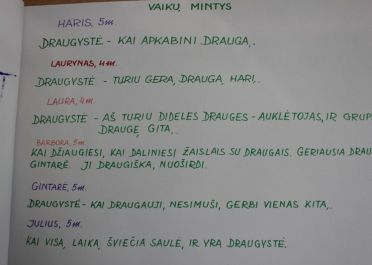 VAIKŲ MINTYS
HARIS, 5m.
DRAUGYSTĖ - KAI APKABINI DRAUGĄ.
LAURYNAS, 4m.
DRAUGYSTĖ - TURIU GERĄ DRAUGĄ HARĮ.
LAURA, 4m.
DRAUGYSTĖ - AŠ TURIU DIDELES DRAUGES - AUKLĖTOJAS, IR GRUP
DRAUGĘ GITĄ.
BARBORA, 5m.
KAI DŽIAUGIESI, KAI DALINIESI ŽAISLAIS SU DRAUGAIS. GERIAUSIA DRAU
GINTARĖ. JI DRAUGIŠKA, NUOŠIRDI.
GINTARĖ, 5m.
DRAUGYSTĖ - KAI DRAUGAUJI, NESIMUŠI, GERBI VIENAS KITĄ.
JULIUS, 5m.
KAI VISĄ LAIKĄ ŠVIEČIA SAULĖ, IR YRA DRAUGYSTĖ.